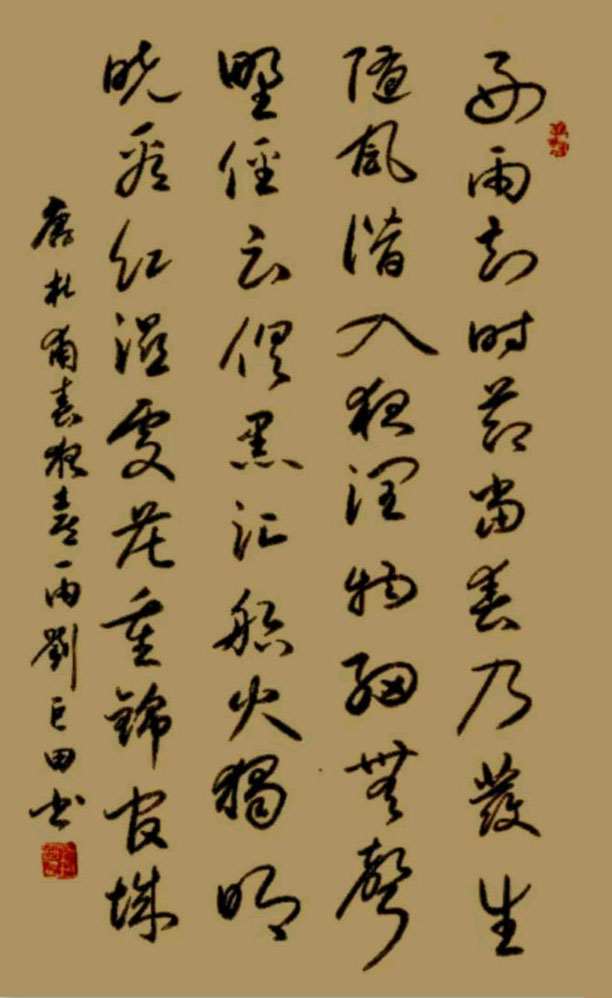 好雨知时节當春乃發生
随風潜入夜润物細無聲
野径云俱黑江船火獨明
晓看红湿处花重錦官城
唐杜甫春夜喜雨劉巨田书